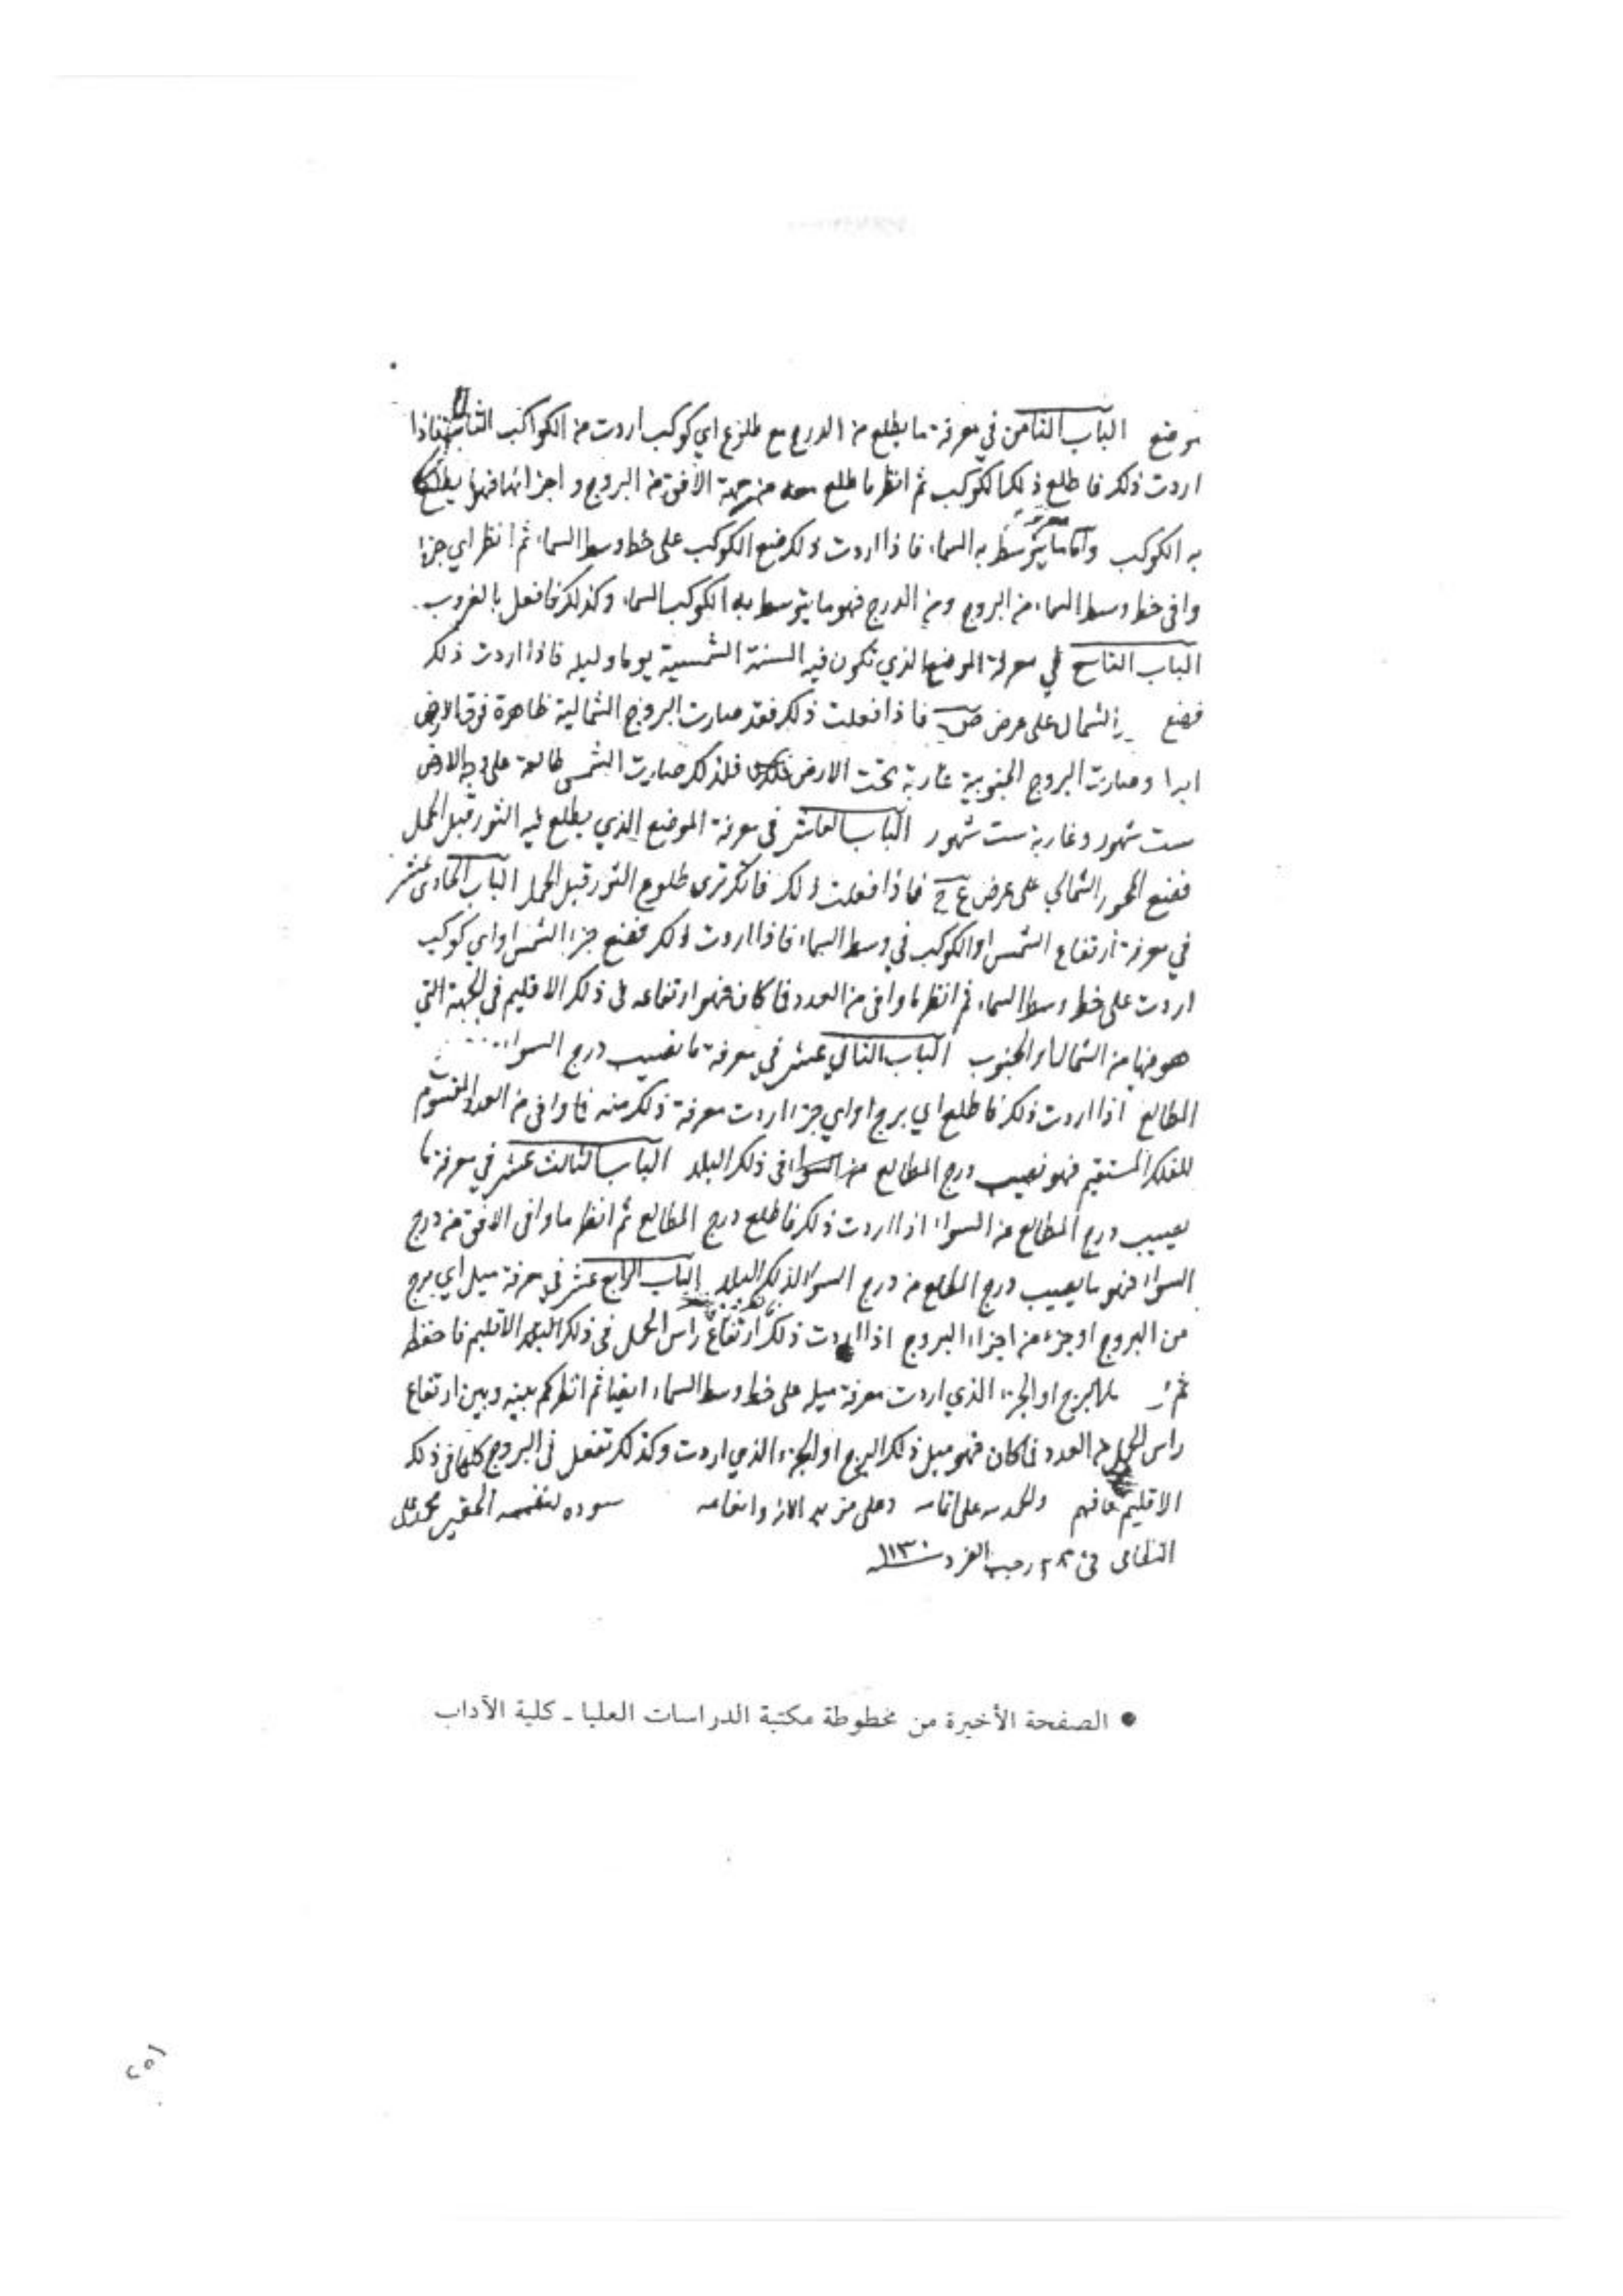 موضع الباب الثامن في معرفة ما يطلع من الدرج مع طلوع اي كوكب اردت من الكواكب الثابتة فاذا
اردت ذلك فاطلع ذلك الكوكب ثم انظر ما طلع معه من جهة الافق من البروج و اجزائها فهو ما يطلع
به الكوكب واما ما يتوسط به السماء فاذا اردت ذلك فضع الكوكب على خط وسط السماء ثم انظر اي جزء
وافى خط وسط السماء من البروج ومن الدرج فهو ما يتوسط به الكوكب السماء وكذلك فافعل بالغروب
الباب التاسع في معرفة الموضع الذي تكون فيه السنة الشمسية يوما وليله فاذا اردت ذلك
فضع الشمال على عرض ص فاذا فعلت ذلك فقد صارت البروج الشمالية ظاهرة فوق الارض
ابدا وصارت البروج الجنوبية غاربة تحت الارض فلذلك صارت الشمس طالعة على وجه الارض
ست شهور وغاربة ست شهور الباب العاشر في معرفة الموضع الذي يطلع فيه الثور قبل الحمل
فضع المحور الشمالي على عرض ع ح فاذا فعلت ذلك فانك ترى طلوع الثور قبل الحمل الباب الحادى عشر
في معرفة ارتفاع الشمس او الكوكب في وسط السماء فاذا اردت ذلك فضع جزء الشمس او اي كوكب
اردت على خط وسط السماء ثم انظر ما وافى من العدد فما كان فهو ارتفاعه فى ذلك الاقليم فى الجهة التي
هو فيها من الشمال او الجنوب الباب الثاني عشر في معرفة ما نصيب درج السواء
المطالع اذا اردت ذلك فاطلع اي برج او اي جزء اردت معرفة ذلك منه فما وافى من العدد المقسوم
للفلك المستقيم فهو نصيب درج المطالع من السواء فى ذلك البلد الباب الثالث عشر في معرفة ما
يصيب درج المطالع من السواء اذا اردت ذلك فاطلع درج المطالع ثم انظر ما وافى الافق من درج
السواء فهو ما يصيب درج المطالع من درج السواء لذلك البلد الباب الرابع عشر في معرفة ميل اي برج
من البروج او جزء من اجزاء البروج اذا اردت ذلك ارتفاع راس الحمل فى ذلك الاقليم فاحفظه
ثم البرج او الجزء الذي اردت معرفة ميله على خط وسط السماء ايضا ثم انظر كم بينه وبين ارتفاع
راس الحمل من العدد فما كان فهو ميل ذلك البرج او الجزء الذي اردت وكذلك تفعل فى البروج كلها فى ذلك
الاقليم فافهم والحمد لله على اتمامه وعلى مزيد الائه وانعامه سوده لنفسه الحقير محمد على
فى رجب الفرد سنة ١١٣٠
● الصفحة الأخيرة من مخطوطة مكتبة الدراسات العليا ـ كلية الآداب
٢٥١